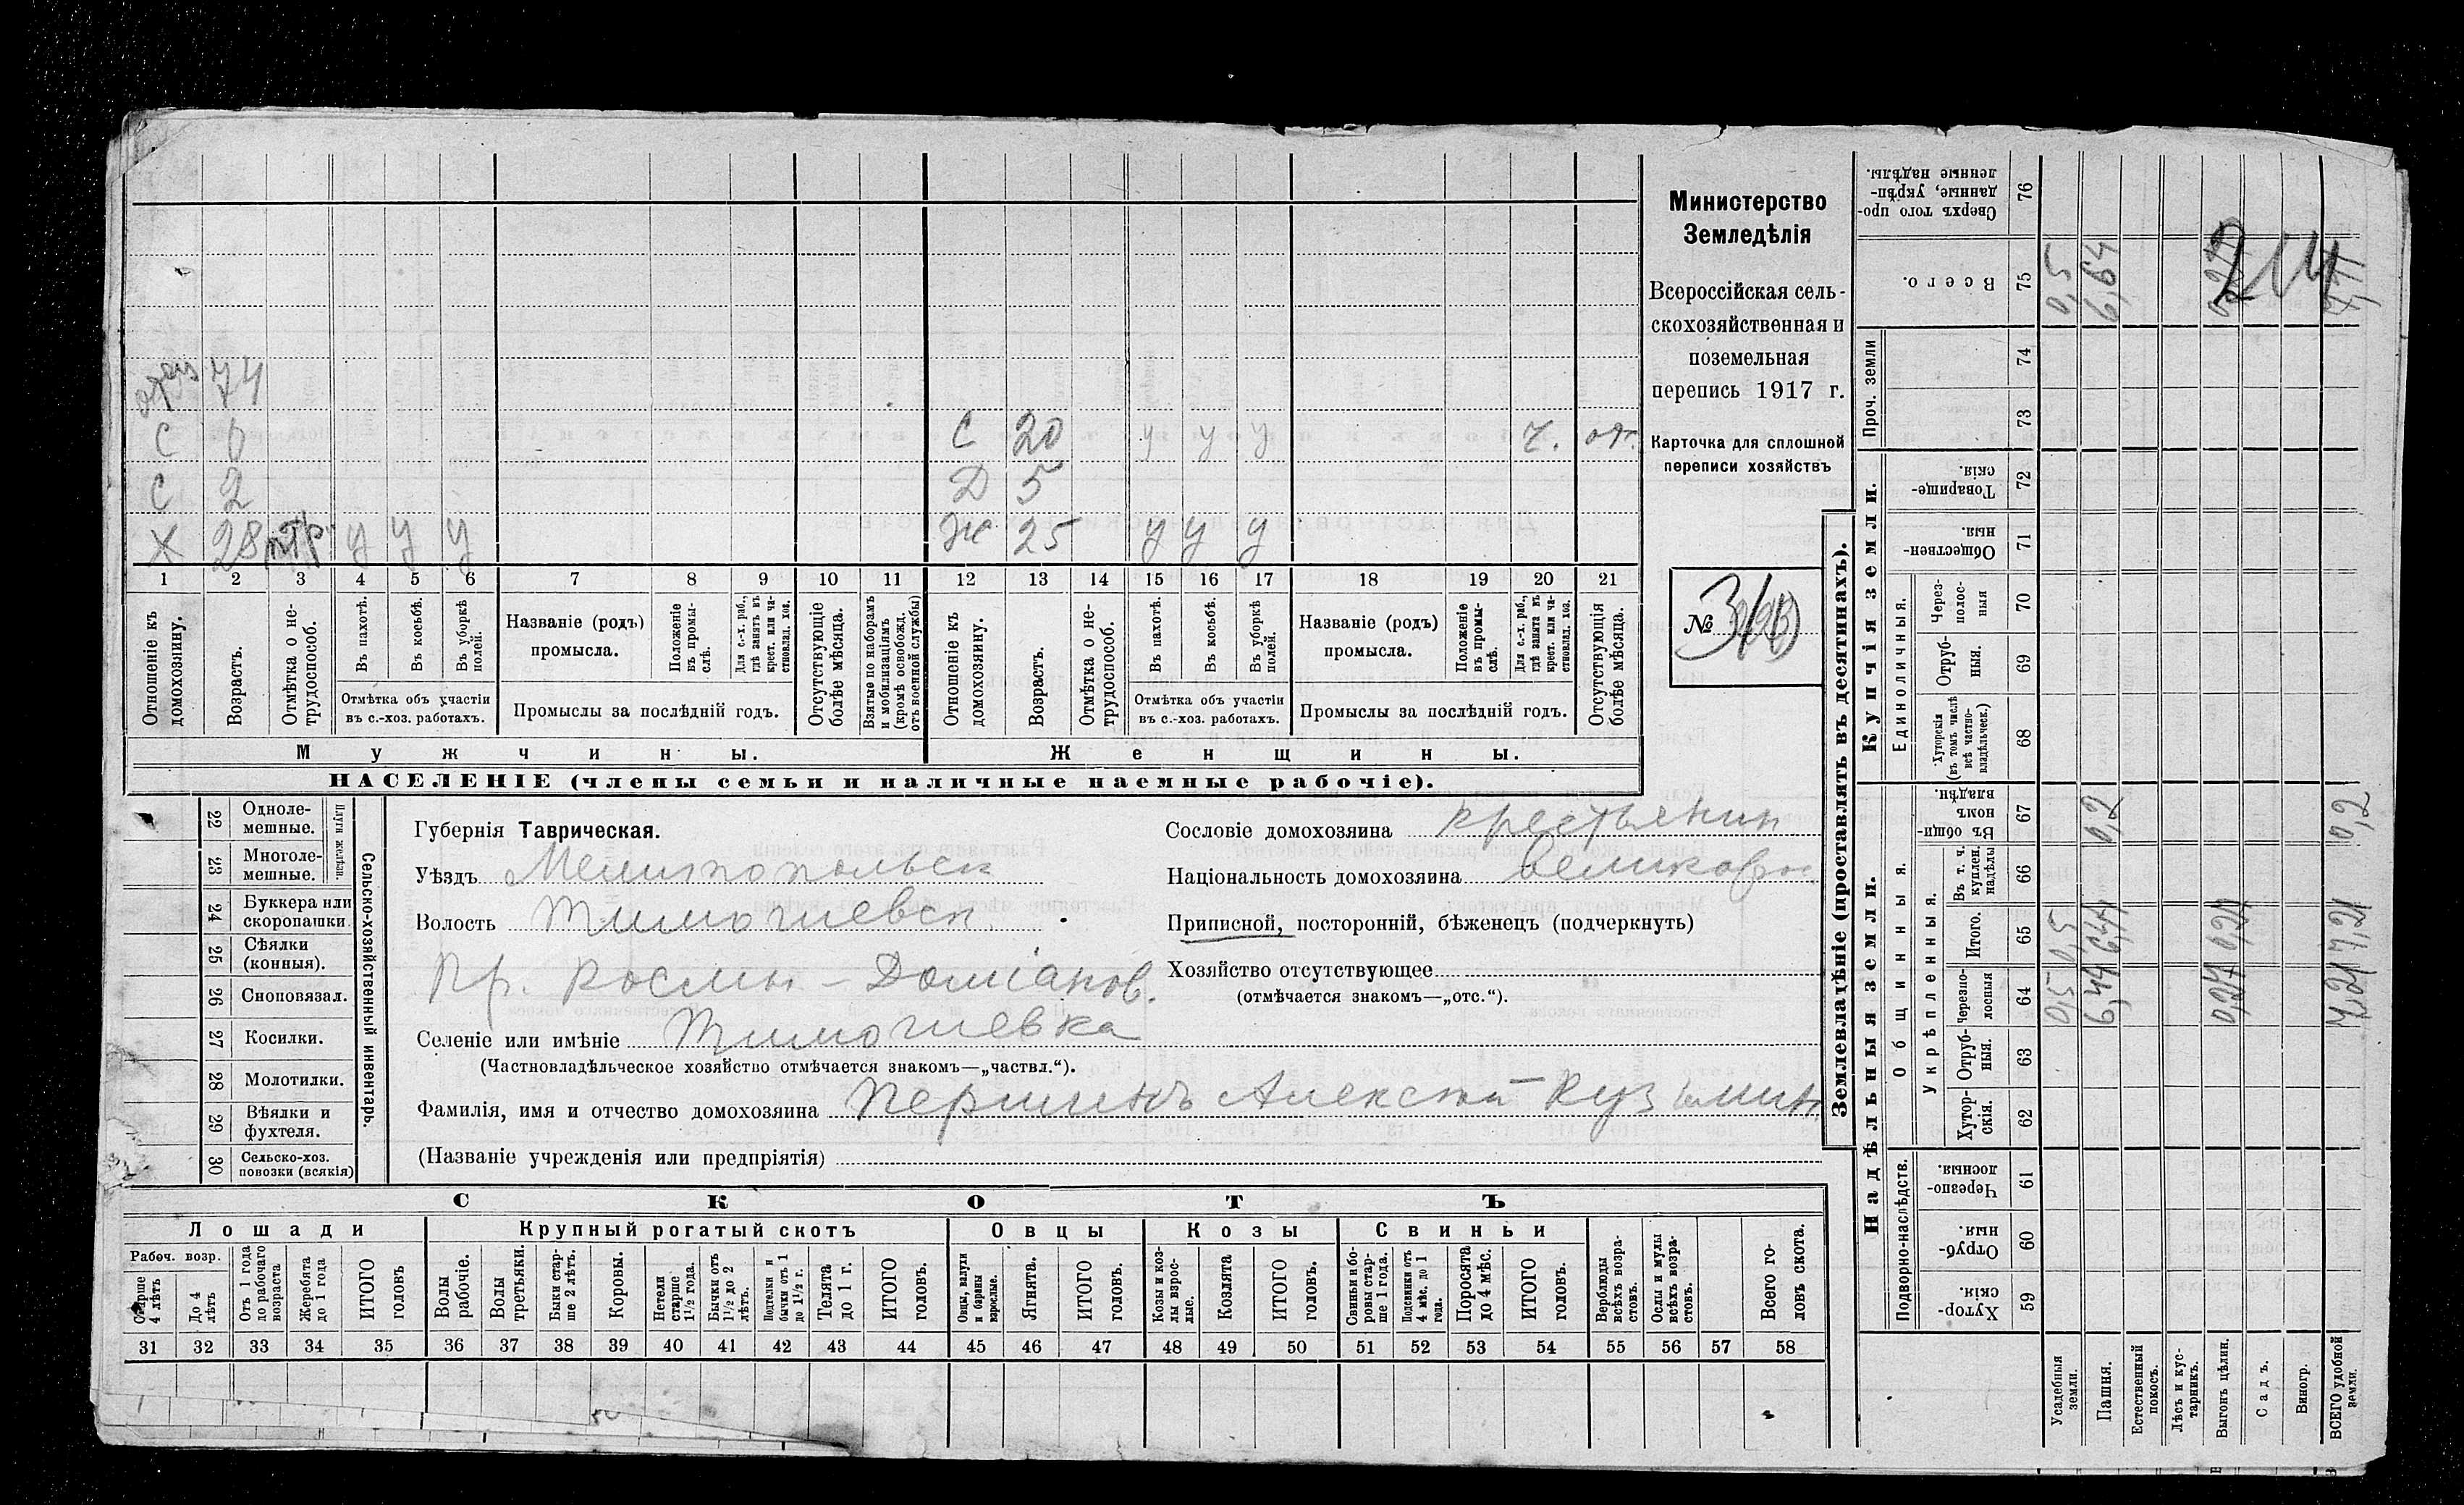 отец 74
С 0 С 20 у у у ч. от.
С 2 Д 5
Х 28 у у у Ж 25 у у у
1 2 3 4 5 6 7 8 9 10 11 12 13 14 15 16 17 18 19 20 21
Отношеніе къ домохозяину.
Возрастъ.
Отмѣтка о нетрудоспособ.
Въ пахотѣ.
Въ косьбѣ.
Въ уборкѣ полей.
Отмѣтка объ участіи
въ с.-хоз. работахъ.
Названіе (родъ)
промысла.
Положеніе въ промыслѣ.
Для с.-х. раб., гдѣ занятъ въ крест. или частновлад. хоз.
Промыслы за послѣдній годъ.
Отсутствующіе болѣе мѣсяца.
Взятые по наборамъ и мобилизаціямъ (кромѣ освобожд. отъ военной службы)
Отношеніе къ домохозяину.
Возрастъ.
Отмѣтка о нетрудоспособ.
Въ пахотѣ.
Въ косьбѣ.
Въ уборкѣ полей.
Отмѣтка объ участіи
въ с.-хоз. работахъ.
Названіе (родъ)
промысла.
Положеніе въ промыслѣ.
Для с.-х. раб., гдѣ занята въ крест. или частновлад. хоз.
Промыслы за послѣдній годъ.
Отсутствующія болѣе мѣсяца.
Мужчины. Женщины.
НАСЕЛЕНІЕ (члены семьи и наличные наемные рабочіе).
Министерство
Земледѣлія
Всероссійская сель-
скохозяйственная и
поземельная
перепись 1917 г.
Карточка для сплошной
переписи хозяйствъ
№
22 Одноле-
мешные.
23 Многоле-
мешные.
Плуги желѣзн.
24 Буккера или
скоропашки
25 Сѣялки
(конныя).
26 Сноповязал.
27 Косилки.
28 Молотилки.
29 Вѣялки и
фухтеля.
30 Сельско-хоз.
повозки (всякія)
Сельско-хозяйственный инвентарь.
Губернія Таврическая.
Уѣздъ Мелитопольск
Волость Тимошевск.
Пр. Косьмы-Доміанов.
Селеніе или имѣніе Тимошевка
(Частновладѣльческое хозяйство отмѣчается знакомъ—„частвл.“).
Фамилія, имя и отчество домохозяина Першинъ Алексѣй Кузьмин
(Названіе учрежденія или предпріятія)
Сословіе домохозяина крестьянин
Національность домохозяина великор
Приписной, посторонній, бѣженец (подчеркнуть)
Хозяйство отсутствующее
(отмѣчается знакомъ—„отс.“).
СКОТЪ
Лошади Крупный рогатый скотъ Овцы Козы Свиньи
Рабоч. возр.
Старше 4 лѣтъ
До 4 лѣтъ
Отъ 1 года до рабочаго возраста
Жеребята до 1 года
ИТОГО головъ
Волы рабочіе.
Волы третьяки.
Быки старше 2 лѣтъ.
Коровы.
Нетели старше 1½ года.
Бычки отъ 1½ до 2 лѣтъ.
Подтелки и бычки отъ 1 до 1½ г.
Телята до 1 г.
ИТОГО головъ.
Овцы, валухи и бараны взрослые.
Ягнята.
ИТОГО головъ.
Козы и козлы взрослые.
Козлята
ИТОГО головъ.
Свиньи и боровы старше 1 года.
Подсвинки отъ 4 мѣс. до 1 года.
Поросята до 4 мѣс.
ИТОГО головъ.
Верблюды всѣхъ возрастовъ.
Ослы и мулы всѣхъ возрастовъ.
Всего головъ скота.
31 32 33 34 35 36 37 38 39 40 41 42 43 44 45 46 47 48 49 50 51 52 53 54 55 56 57 58
Землевладѣніе (проставлять въ десятинахъ).
Сверхъ того проданные, укрѣпленные надѣлы. 76
Всего. 75 0,5 6,64
Проч. земли
74
73
Купчія земли.
Товарищескія. 72
Общественныя. 71
Единоличныя.
Черезполосныя 70
Отрубныя. 69
Хуторскія (въ томъ числѣ всѣ частновладѣльческ.) 68
Надѣльныя земли.
Общинныя.
Въ общинномъ владѣн. 67 0,2 0,2
Укрѣпленныя.
Въ т. ч. куплен. надѣлы 66
Итого. 65 0,5 6,44 0,27 7,21
Черезполосныя 64 0,5 6,44 0,27 7,21
Отрубныя. 63
Хуторскія. 62
Подворно-наслѣдств.
Черезполосныя. 61
Отрубныя. 60
Хуторскія. 59
Усадебныя земли.
Пашня.
Естественный покосъ.
Лѣсъ и кустарникъ.
Выгонъ цѣлин.
Садъ.
Виногр.
ВСЕГО удобной земли.